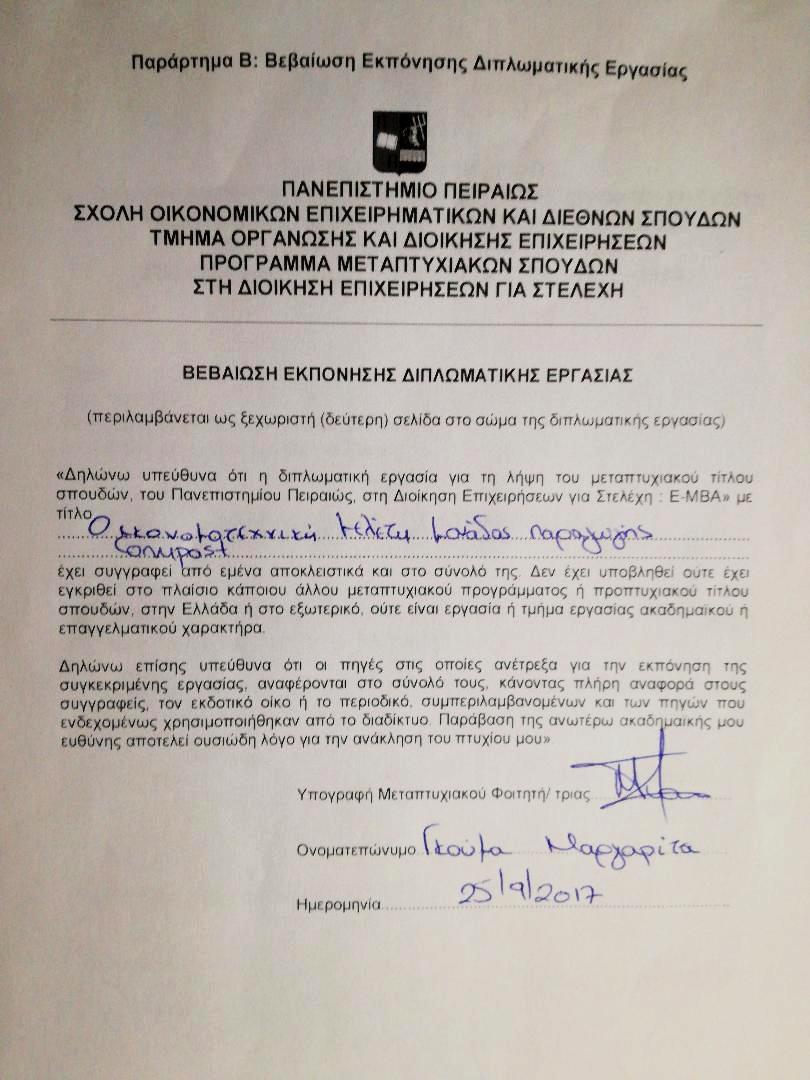 Παράρτημα Β: Βεβαίωση Εκπόνησης Διπλωματικής Εργασίας
ΠΑΝΕΠΙΣΤΗΜΙΟ ΠΕΙΡΑΙΩΣ
ΣΧΟΛΗ ΟΙΚΟΝΟΜΙΚΩΝ ΕΠΙΧΕΙΡΗΜΑΤΙΚΩΝ ΚΑΙ ΔΙΕΘΝΩΝ ΣΠΟΥΔΩΝ
ΤΜΗΜΑ ΟΡΓΑΝΩΣΗΣ ΚΑΙ ΔΙΟΙΚΗΣΗΣ ΕΠΙΧΕΙΡΗΣΕΩΝ
ΠΡΟΓΡΑΜΜΑ ΜΕΤΑΠΤΥΧΙΑΚΩΝ ΣΠΟΥΔΩΝ
ΣΤΗ ΔΙΟΙΚΗΣΗ ΕΠΙΧΕΙΡΗΣΕΩΝ ΓΙΑ ΣΤΕΛΕΧΗ
ΒΕΒΑΙΩΣΗ ΕΚΠΟΝΗΣΗΣ ΔΙΠΛΩΜΑΤΙΚΗΣ ΕΡΓΑΣΙΑΣ
(περιλαμβάνεται ως ξεχωριστή (δεύτερη) σελίδα στο σώμα της διπλωματικής εργασίας)
«Δηλώνω υπεύθυνα ότι η διπλωματική εργασία για τη λήψη του μεταπτυχιακού τίτλου
σπουδών, του Πανεπιστημίου Πειραιώς, στη Διοίκηση Επιχειρήσεων για Στελέχη : E-MBA» με
τίτλο
Οικονομοτεχνική Μελέτη Μονάδας Παραγωγής
Compost
έχει συγγραφεί από εμένα αποκλειστικά και στο σύνολό της. Δεν έχει υποβληθεί ούτε έχει
εγκριθεί στο πλαίσιο κάποιου άλλου μεταπτυχιακού προγράμματος ή προπτυχιακού τίτλου
σπουδών, στην Ελλάδα ή στο εξωτερικό, ούτε είναι εργασία ή τμήμα εργασίας ακαδημαϊκού ή
επαγγελματικού χαρακτήρα.
Δηλώνω επίσης υπεύθυνα ότι οι πηγές στις οποίες ανέτρεξα για την εκπόνηση της
συγκεκριμένης εργασίας, αναφέρονται στο σύνολό τους, κάνοντας πλήρη αναφορά στους
συγγραφείς, τον εκδοτικό οίκο ή το περιοδικό, συμπεριλαμβανομένων και των πηγών που
ενδεχομένως χρησιμοποιήθηκαν από το διαδίκτυο. Παράβαση της ανωτέρω ακαδημαϊκής μου
ευθύνης αποτελεί ουσιώδη λόγο για την ανάκληση του πτυχίου μου»
Υπογραφή Μεταπτυχιακού Φοιτητή/ τριας
Ονοματεπώνυμο Γκούμα Μαργαρίτα
Ημερομηνία 25/9/2017